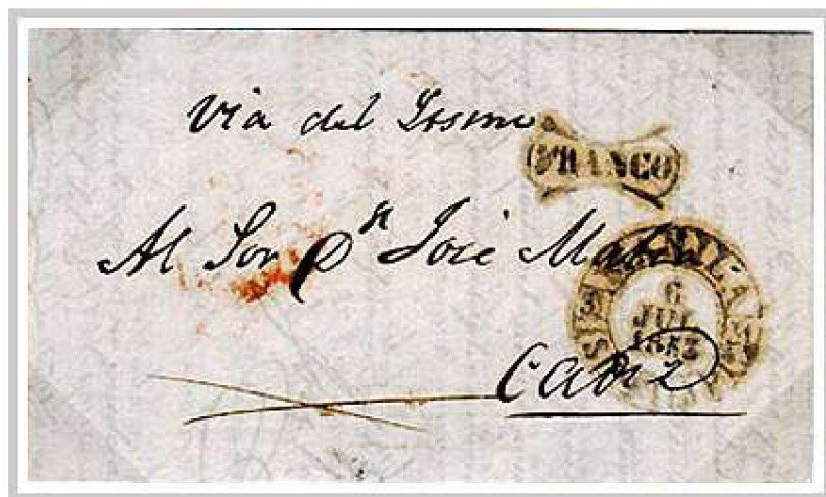 Via del Istmo
FRANCO
Al Sor Dn José
6
JUL
1853
Cadiz